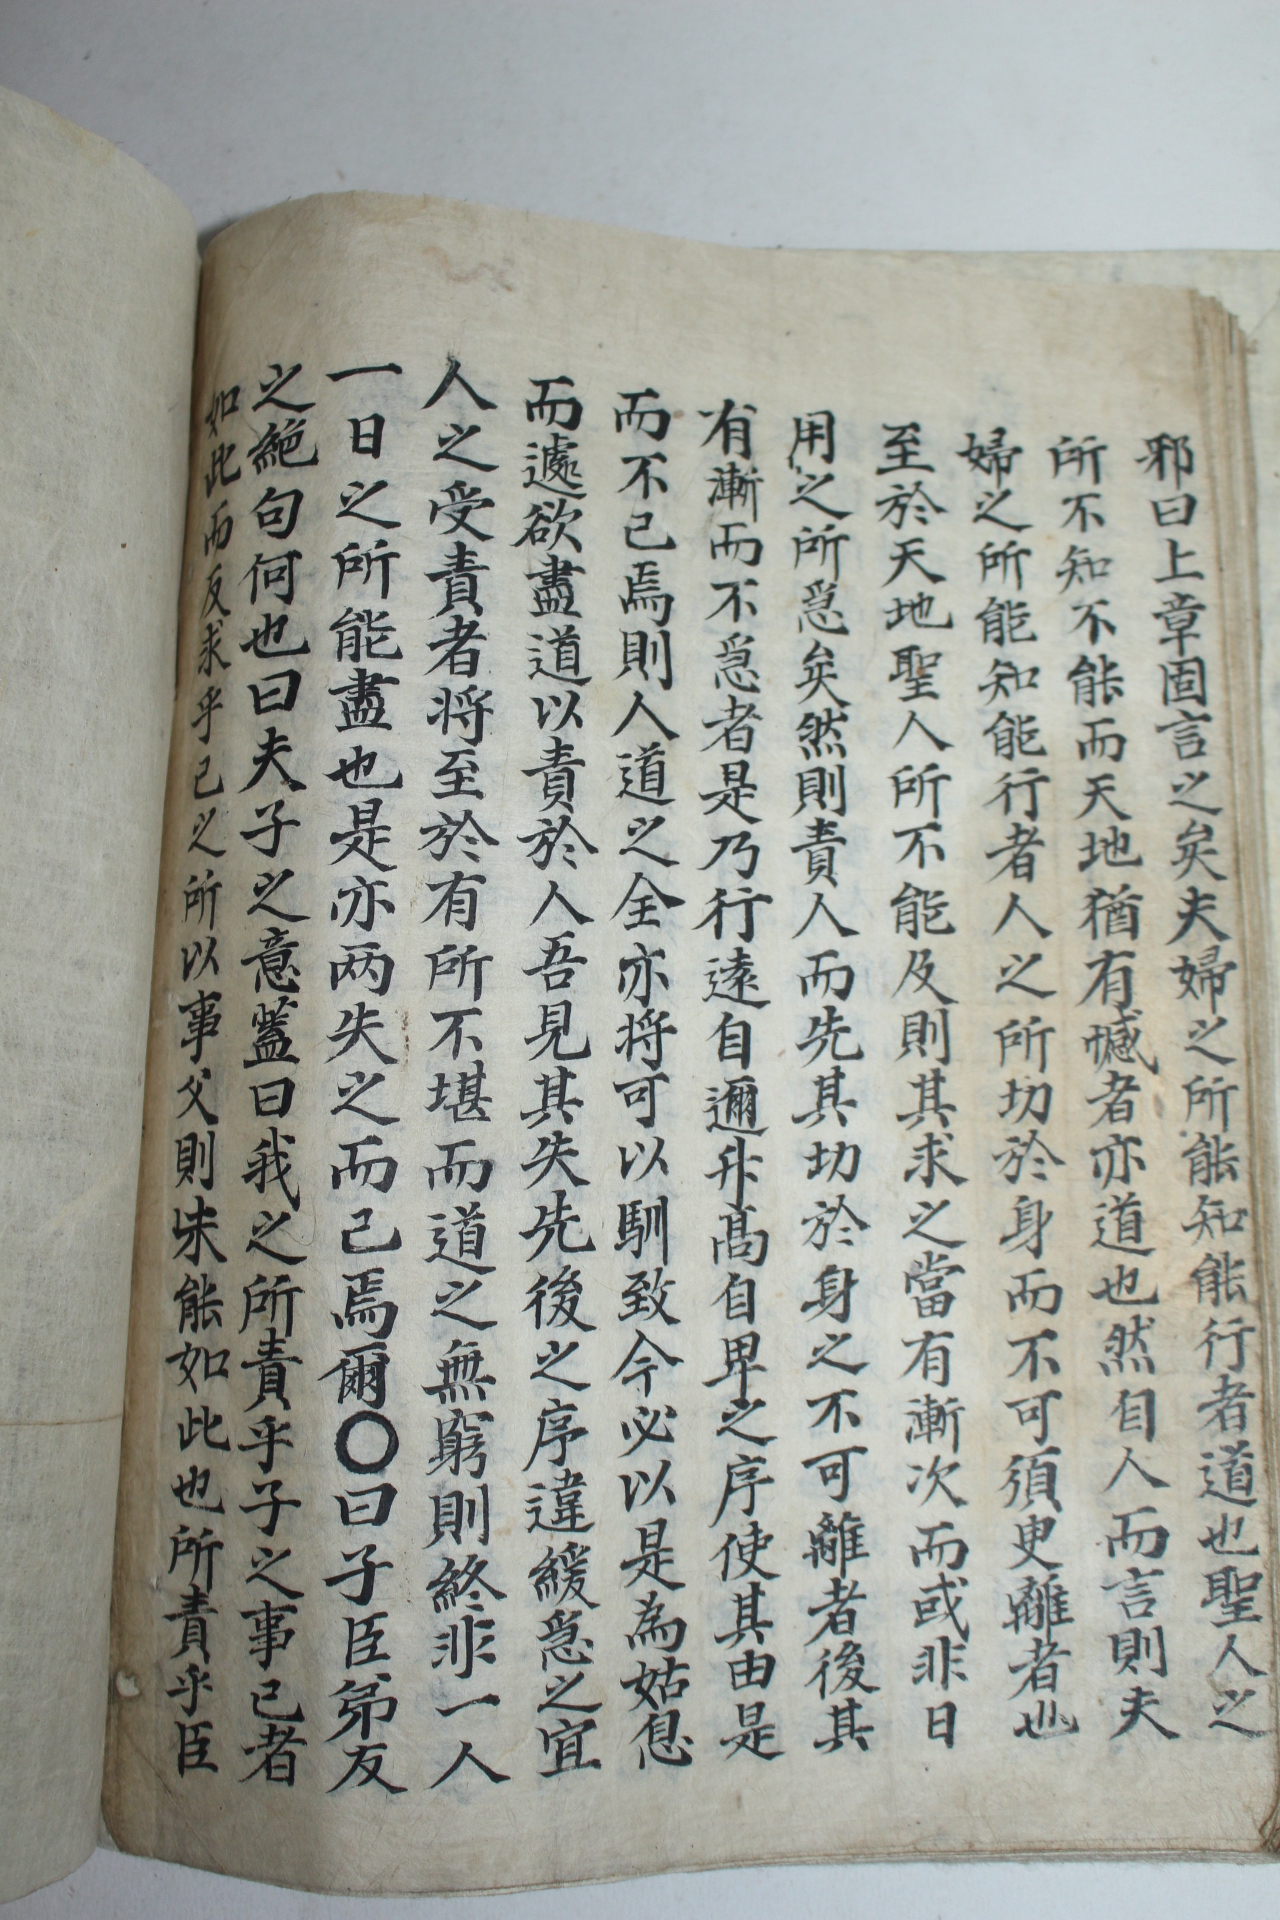 邪曰上章固言之矣夫婦之所能知能行者道也聖人之
所不知不能而天地猶有憾者亦道也然自人而言則夫
婦之所能知能行者人之所切於身而不可須臾離者也
至於天地聖人所不能及則其求之當有漸次而或非日
用之所急矣然則責人而先其切於身之不可離者後其
有漸而不急者是乃行遠自邇升高自卑之序使其由是
而不已焉則人道之全亦将可以馴致今必以是為姑息
而遽欲盡道以責於人吾見其失先後之序違緩急之宜
人之受責者将至於有所不堪而道之無窮則終非一人
一日之所能盡也是亦两失之而已焉爾〇曰子臣弟友
之絶句何也曰夫子之意盖曰我之所責乎子之事已者
如此而反求乎己之所以事父則未能如此也所責乎臣